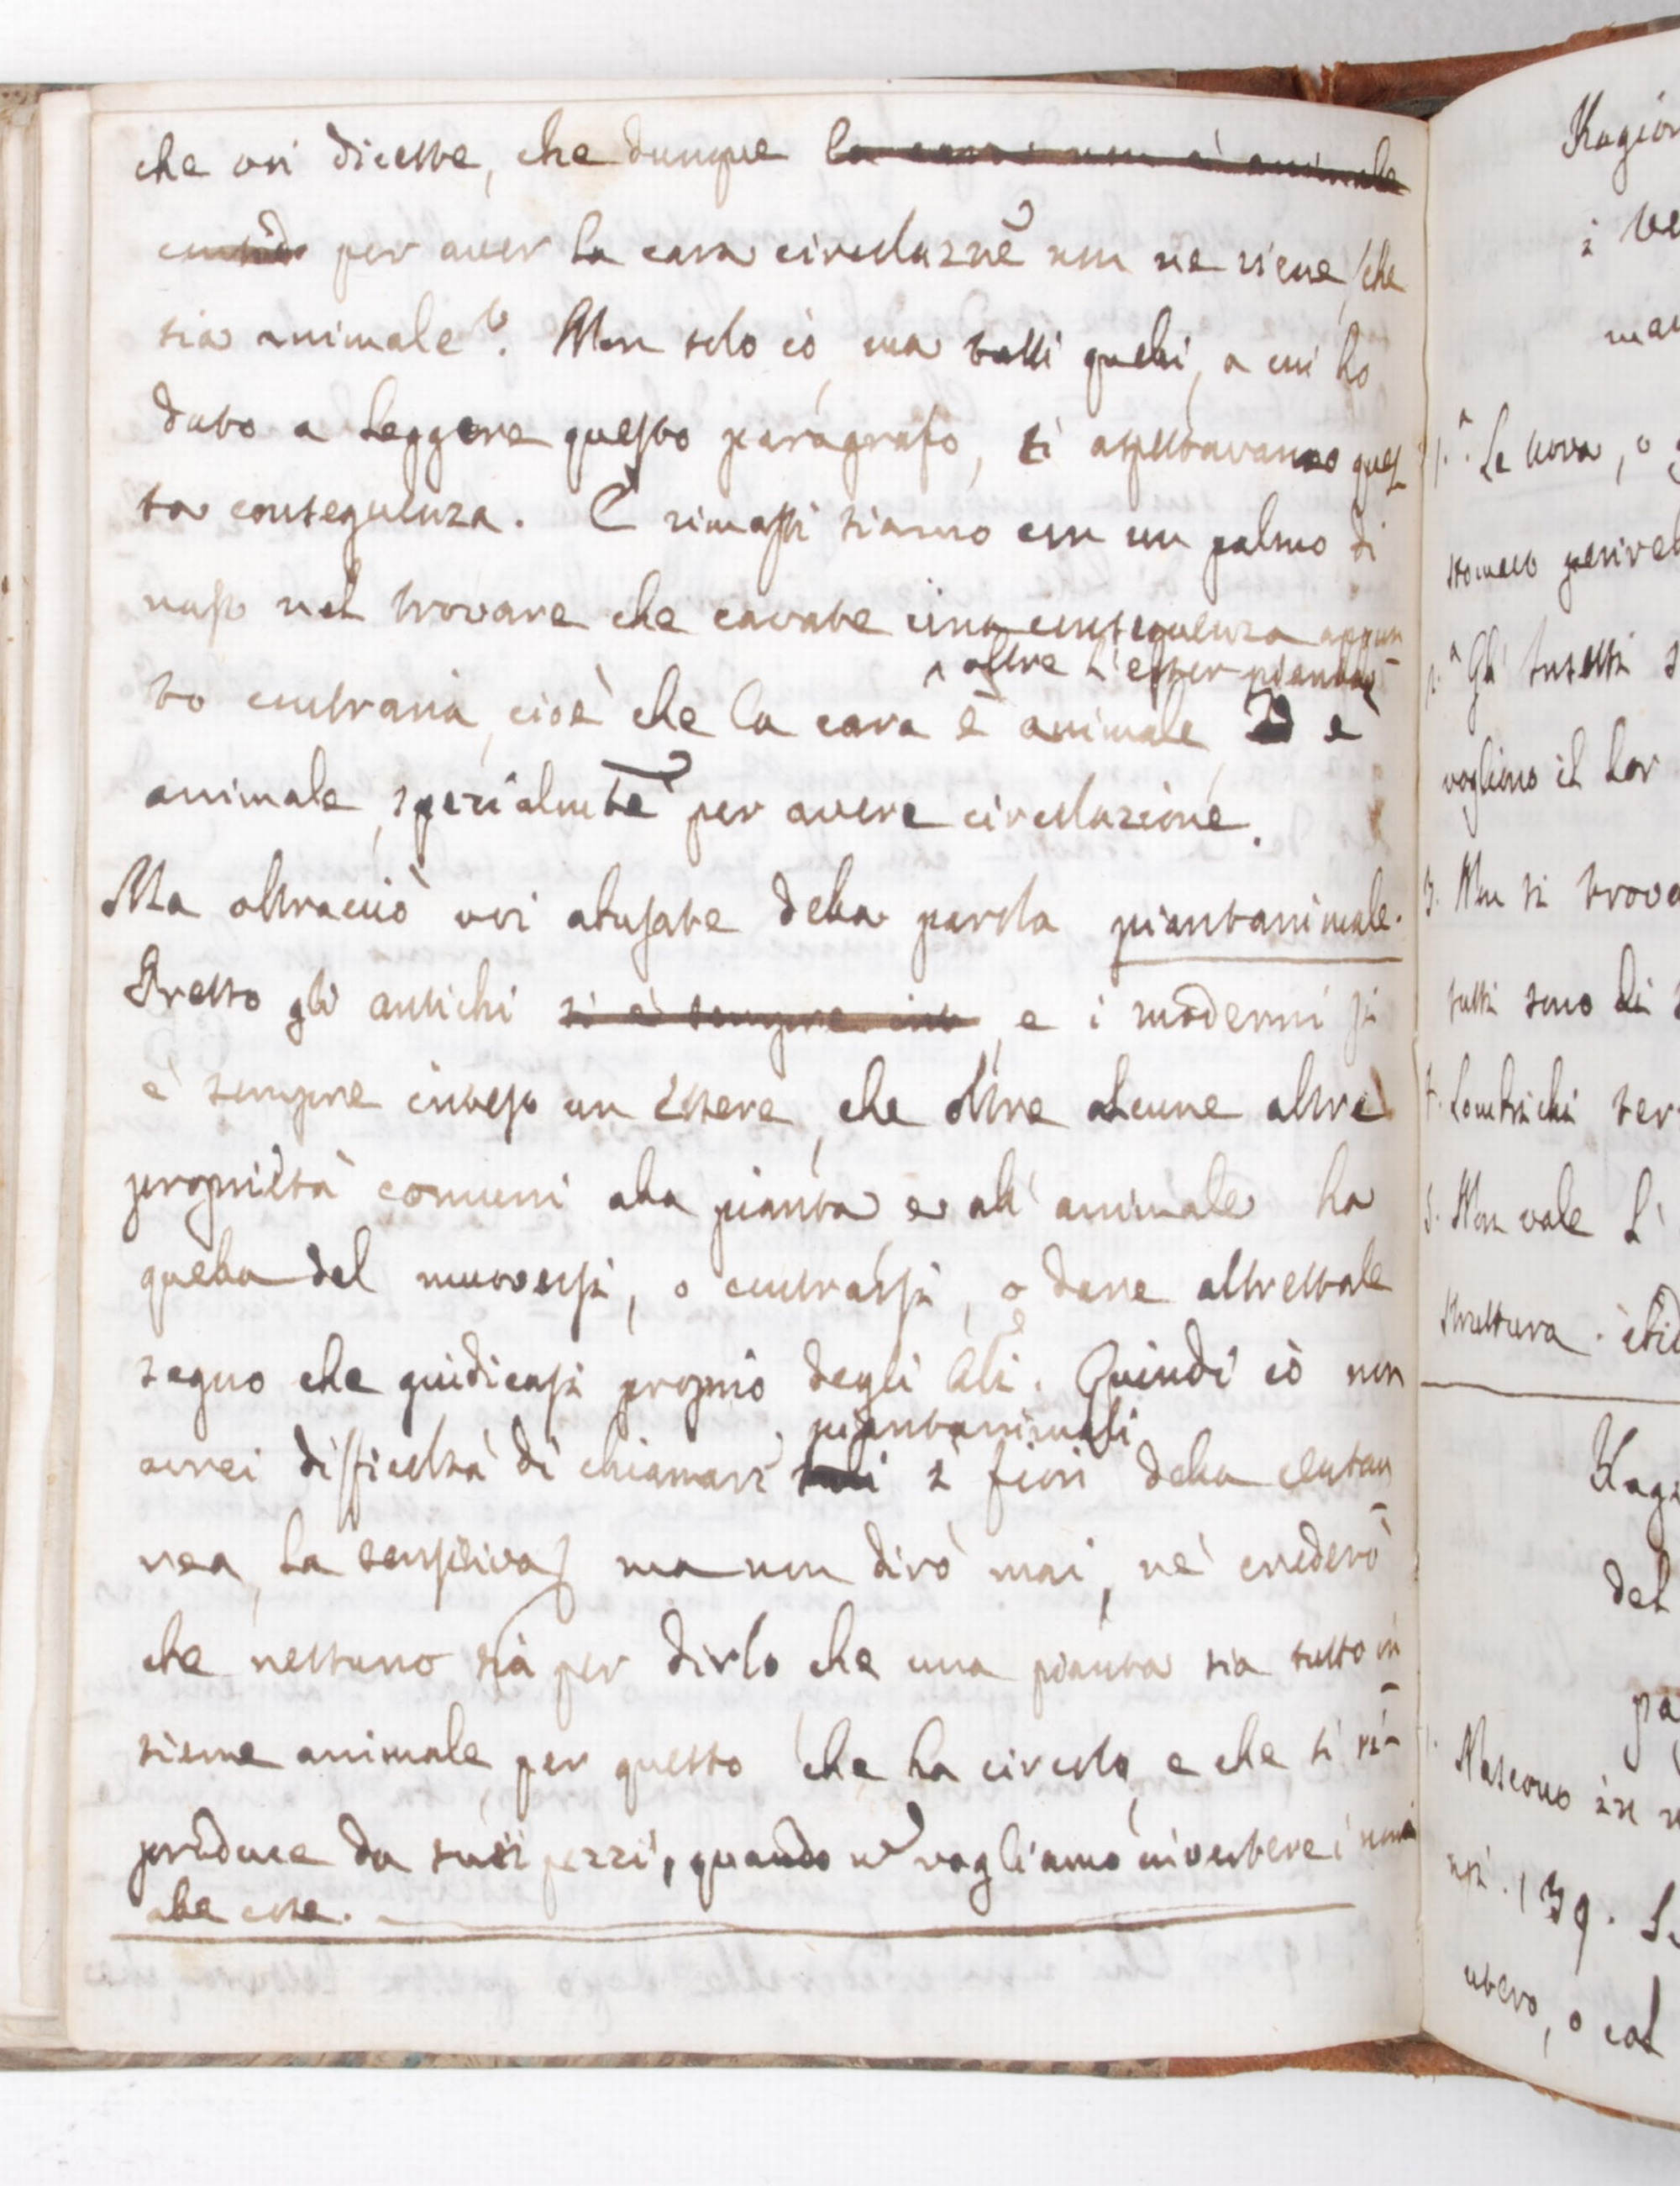 che voi diceste, che dunque la cara non è animale
per aver la cara circolazne non ne viene, che
sia animale. Non solo io, ma tutti quelli, a cui ho
dato a leggere questo paragrafo, si aspettavanno ques
ta conseguenza. E rimasti siamo con un palmo di
naso nel trovare che cavate una conseguenza appun
to contraria, cioè che la cara è animale, e è
oltre l'esser pianta
animale, spezialmte per avere circolazione.
Ma oltracciò voi abusate della parola piantanimale.
Presso gli antichi si è sempre int, e i moderni si
è sempre inteso un Essere, che oltre alcune altre
proprietà comuni alla pianta e all'animale ha
quella del muoversi, o contrarsi, o dare altrettale
segno che giudicasi proprio degli Ali. Quindi io non
piantanimali
avrei difficoltà di chiamar tali i fiori della centau
rea, la sensitiva, ma non dirò mai, nè crederò
che nessuno sia per dirlo che una pianta sia tutto in
sieme animale per questo che ha circolo, e che si ri-
produce da suoi pezzi, quando n vogliamo invertere i nomi
alle cose.
Ragion
i ve
man
1.a Le uova, o
stomaco perireb
2.a Gli Insetti s
vogliono il lor
3. Non si trova
tutti sono di
4. Lombrichi ter
5. Non vale l'
struttura.
Ragi
del
pa
Nascono in
39. L
utero, o col